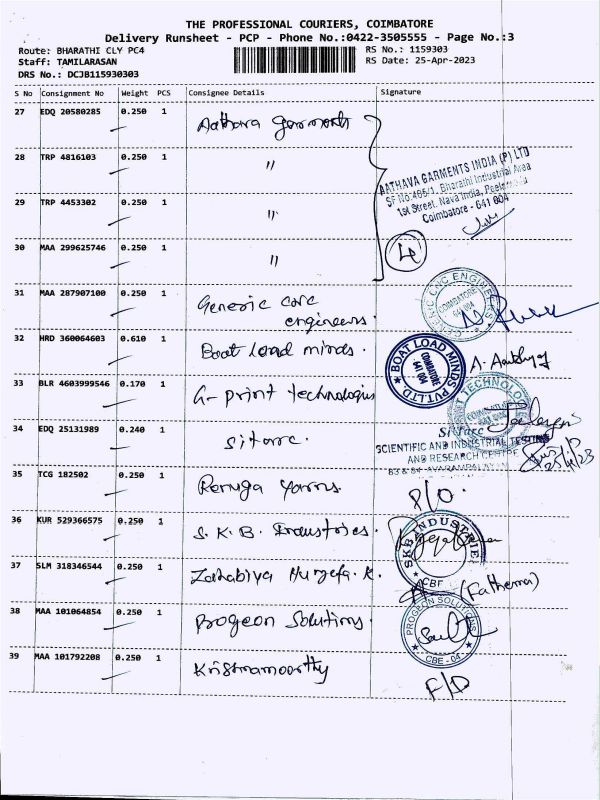 THE PROFESSIONAL COURIERS, COIMBATORE
Delivery Runsheet - PCP - Phone No.:0422-3505555 - Page No.:3
Route: BHARATHI CLY PC4
RS No.: 1159303
Staff: TAMILARASAN
RS Date: 25-Apr-2023
DRS No.: DCJB115930303
S No Consignment No Weight PCS Consignee Details Signature
27 EDQ 20580285 0.250 1 Aathava Garments
28 TRP 4816103 0.250 1 "
AATHAVA GARMENTS INDIA (P) LTD
SF No.485/1, Bharathi Industrial Area
1st Street, Nava India, Peelamedu
Coimbatore - 641 004
29 TRP 4453302 0.250 1 "
30 MAA 299625746 0.250 1 "
4
31 MAA 287907100 0.250 1 Generic cnc
engineers.
GENERIC CNC ENGINEERS
COIMBATORE
641 004
32 HRD 360064603 0.610 1 Boat Load minds.
BOAT LOAD MINDS PVT.LTD.
COIMBATORE
641 004
33 BLR 4603999546 0.170 1 G-print technologies
TECHNOLOG
34 EDQ 25131989 0.240 1 Sitarc.
Si'Tarc
SCIENTIFIC AND INDUSTRIAL TESTING
AND RESEARCH CENTRE
25/4/23
35 TCG 182502 0.250 1 Renuga Yarns.
P/O.
36 KUR 529366575 0.250 1 S.K.B. Industries.
SKB INDUSTRIES
CBE
37 SLM 318346544 0.250 1 Zahabiya Huzefa.K.
(Fathema)
38 MAA 101064854 0.250 1 Progeon Solutions.
PROGEON SOLUTIONS
CBE - 04
39 MAA 101792208 0.250 1 Krishnamoorthy
F/D